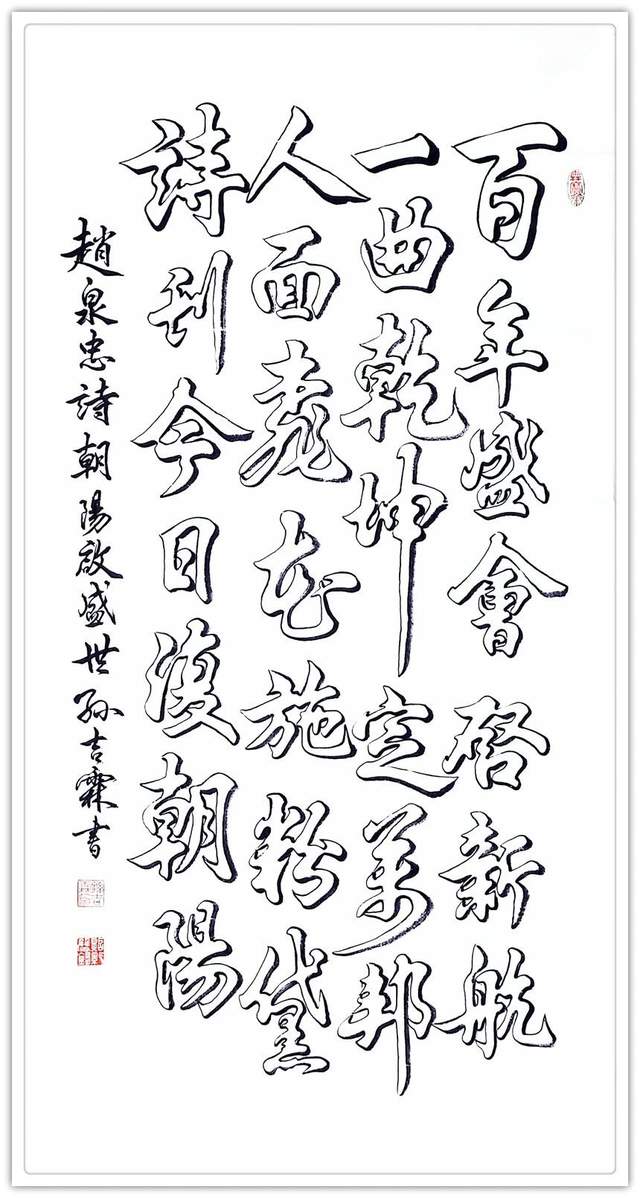 百年盛會啓新航
一曲乾坤定萬邦
人面桃花施粉黛
詩刊今日復朝陽
趙泉忠詩朝陽啟盛世孫吉霖書